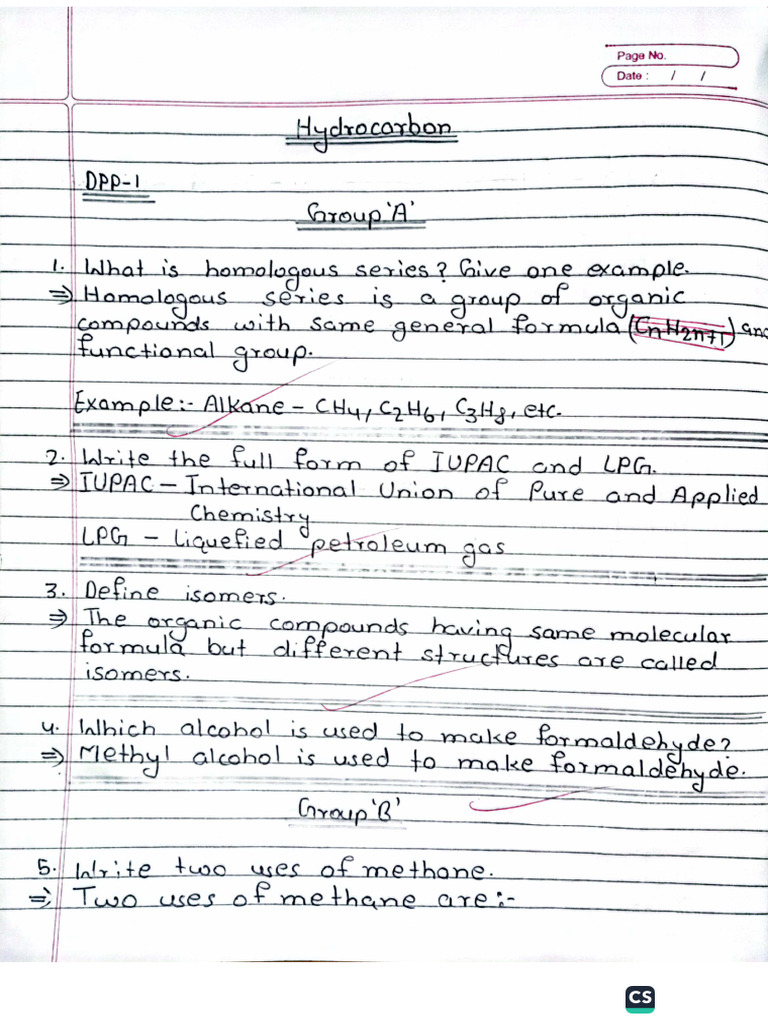 Page No.
Date : / /
Hydrocarbon
DPP-1
Group 'A'
1. What is homologous series? Give one example.
⇒ Homologous series is a group of organic
compounds with same general formula (CnH2n+1) and
functional group.
Example:- Alkane - CH4, C2H6, C3H8, etc.
2. Write the full form of IUPAC and LPG.
⇒ IUPAC - International Union of Pure and Applied
Chemistry
LPG - Liquefied petroleum gas
3. Define isomers.
⇒ The organic compounds having same molecular
formula but different structures are called
isomers.
4. Which alcohol is used to make formaldehyde?
⇒ Methyl alcohol is used to make formaldehyde.
Group 'B'
5. Write two uses of methane.
⇒ Two uses of methane are:-
CS